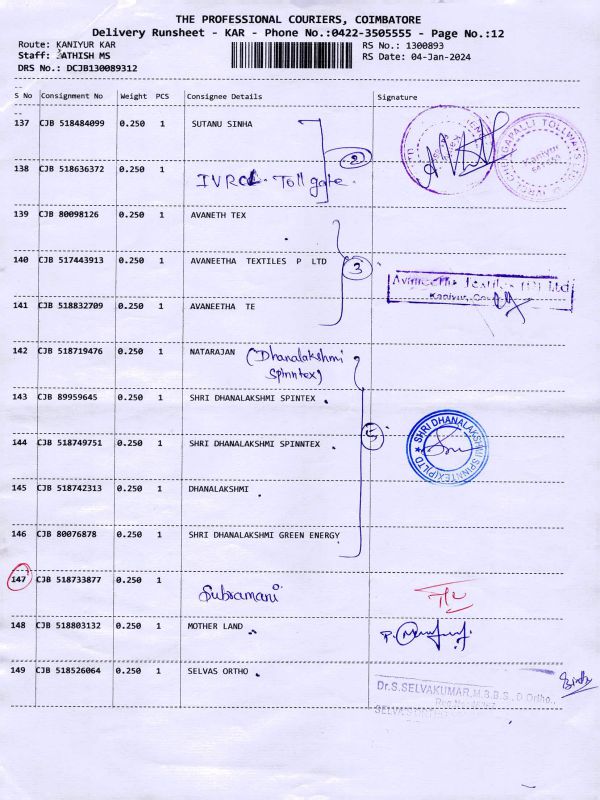 THE PROFESSIONAL COURIERS, COIMBATORE
Delivery Runsheet - KAR - Phone No.:0422-3505555 - Page No.:12
Route: KANIYUR KAR
RS No.: 1300893
Staff: SATHISH MS
RS Date: 04-Jan-2024
DRS No.: DCJB130089312
S No Consignment No Weight PCS Consignee Details Signature
137 CJB 518484099 0.250 1 SUTANU SINHA
2
138 CJB 518636372 0.250 1 IVRCL. Toll gate.
139 CJB 80098126 0.250 1 AVANETH TEX
140 CJB 517443913 0.250 1 AVANEETHA TEXTILES P LTD 3
Avaneetha Textiles (P) Ltd
Kaniyur, 
141 CJB 518832709 0.250 1 AVANEETHA TE
142 CJB 518719476 0.250 1 NATARAJAN (Dhanalakshmi
Spinntex)
143 CJB 89959645 0.250 1 SHRI DHANALAKSHMI SPINTEX
5
144 CJB 518749751 0.250 1 SHRI DHANALAKSHMI SPINNTEX
SHRI DHANALAKSHMI SPINNTEX(P)LTD
145 CJB 518742313 0.250 1 DHANALAKSHMI
146 CJB 80076878 0.250 1 SHRI DHANALAKSHMI GREEN ENERGY
147 CJB 518733877 0.250 1 Subramani
148 CJB 518803132 0.250 1 MOTHER LAND
149 CJB 518526064 0.250 1 SELVAS ORTHO
Dr.S.SELVAKUMAR,M.B.B.S., D.Ortho.,
SELVAS ORTHO